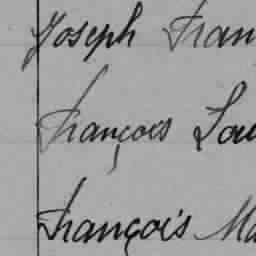 Joseph Fran
François Lou
François Ma